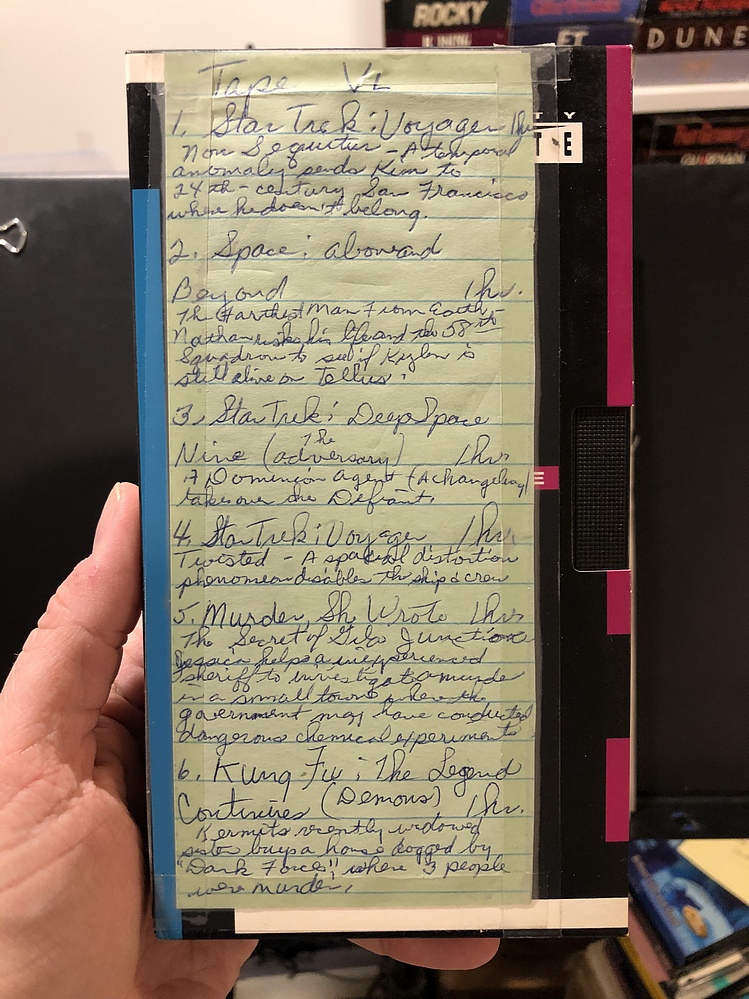 ROCKY
ET
DUNE
Tape VL
1. Star Trek: Voyager 1hr
Non Sequitur - A temporal
anomaly sends Kim to
24th-century San Francisco
where he doesn't belong.
2. Space: above and
Beyond 1hr.
The Farthest Man From Earth
Nathan risks his life and the 58th
Squadron to see if Kylen is
still alive on Tellus.
3. Star Trek: Deep Space
Nine (The adversary) 1hr
A Dominion agent (A changeling)
takes over the Defiant.
4. Star Trek: Voyager 1hr.
Twisted - A spacial distortion
phenomeon disables the ship & crew
5. Murder, She Wrote 1hr
The Secret of Gila Junction
Jessica helps a inexperienced
sheriff to investigate a murder
in a small town where the
government may have conducted
dangerous chemical experiments
6. Kung Fu: The Legend
Continues (Demons) 1hr.
Kermits recently widowed
sister buys a house dogged by
"Dark Forces", where 3 people
were murder.
TY
TE
E